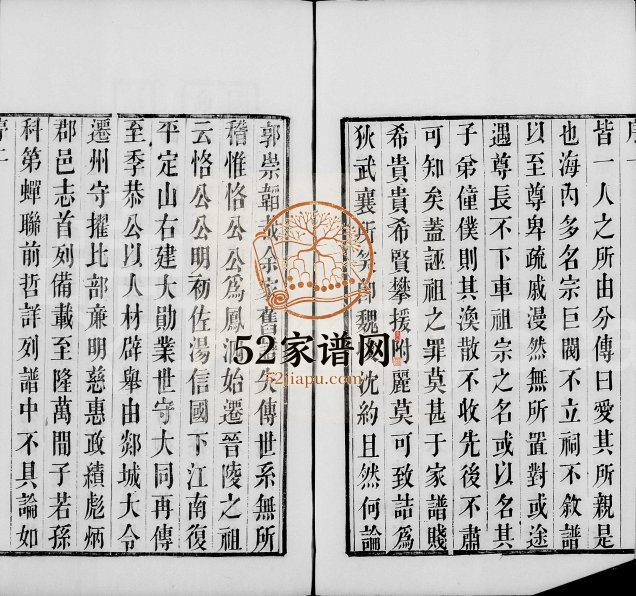 序
皆一人之所由分傳曰愛其所親是
也海內多名宗巨閥不立祠不敘譜
以至尊卑疏戚漫然無所置對或途
遇尊長不下車祖宗之名或以名其
子弟僮僕則其渙散不收先後不肅
可知矣蓋誣祖之罪莫甚于家譜賤
希貴貴希賢攀援附麗莫可致詰爲
狄武襄所笑即魏沈約且然何論
郭崇韜哉余家舊失傳世系無所
稽惟恪公公爲鳳始遷晉陵之祖
云恪公公明初佐湯信國下江南復
平定山右建大勛業世守大同再傳
至季恭公以人材辟舉由郯城大令
遷州守擢比部亷明慈惠政績彪炳
郡邑志首列備載至隆萬間子若孫
科第蟬聯前哲詳列譜中不具論如
52家谱网
52jiapu.com